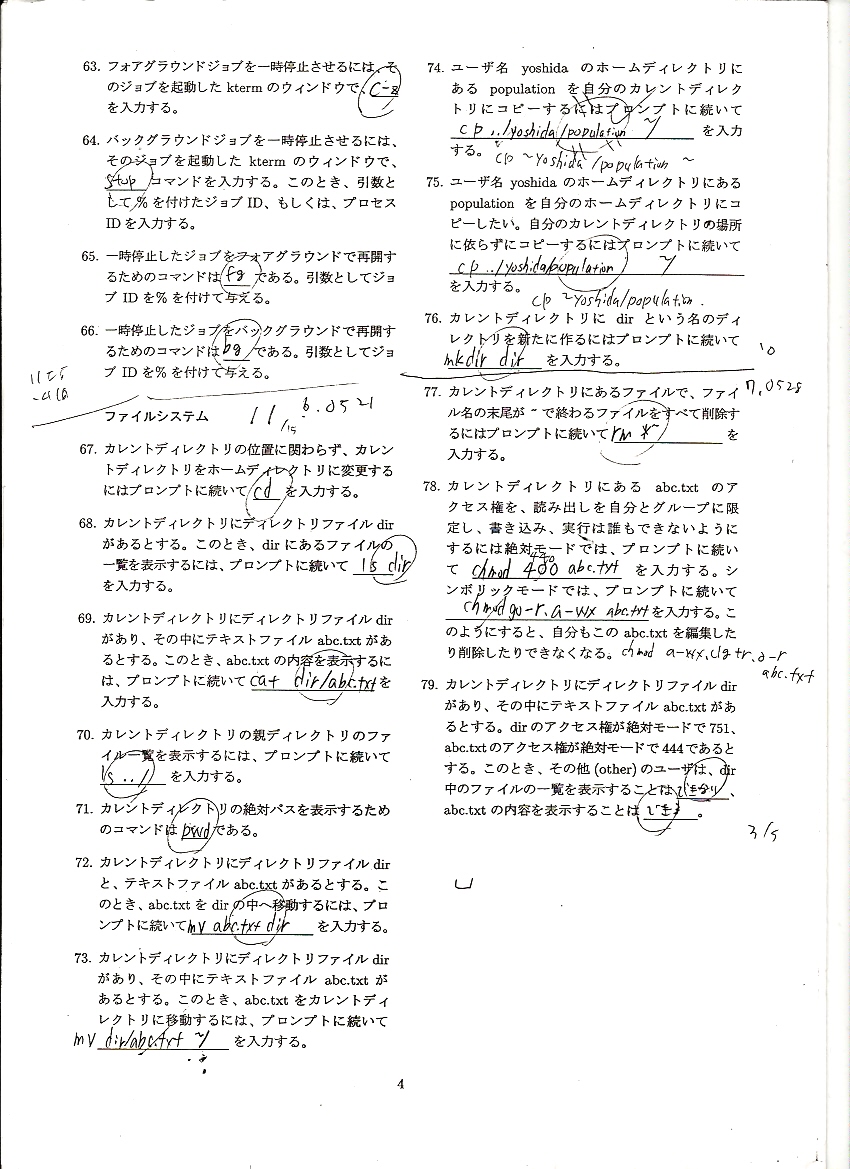 63. フォアグラウンドジョブを一時停止させるには、そ
のジョブを起動した kterm のウィンドウで、C-z
を入力する。
64. バックグラウンドジョブを一時停止させるには、
そのジョブを起動した kterm のウィンドウで、
stop コマンドを入力する。このとき、引数と
して % を付けたジョブ ID、もしくは、プロセス
ID を入力する。
65. 一時停止したジョブをフォアグラウンドで再開す
るためのコマンドは fg である。引数としてジョ
ブ ID を % を付けて与える。
66. 一時停止したジョブをバックグラウンドで再開す
るためのコマンドは bg である。引数としてジョ
ブ ID を % を付けて与える。
ファイルシステム
11/15
6.0521
67. カレントディレクトリの位置に関わらず、カレン
トディレクトリをホームディレクトリに変更する
にはプロンプトに続いて cd を入力する。
68. カレントディレクトリにディレクトリファイル dir
があるとする。このとき、dir にあるファイルの
一覧を表示するには、プロンプトに続いて ls dir
を入力する。
69. カレントディレクトリにディレクトリファイル dir
があり、その中にテキストファイル abc.txt があ
るとする。このとき、abc.txt の内容を表示するに
は、プロンプトに続いて cat dir/abc.txt を
入力する。
70. カレントディレクトリの親ディレクトリのファ
イル一覧を表示するには、プロンプトに続いて
ls ../ を入力する。
71. カレントディレクトリの絶対パスを表示するため
のコマンドは pwd である。
72. カレントディレクトリにディレクトリファイル dir
と、テキストファイル abc.txt があるとする。こ
のとき、abc.txt を dir の中へ移動するには、プロ
ンプトに続いて mv abc.txt dir を入力する。
73. カレントディレクトリにディレクトリファイル dir
があり、その中にテキストファイル abc.txt が
あるとする。このとき、abc.txt をカレントディ
レクトリに移動するには、プロンプトに続いて
mv dir/abc.txt ~/ を入力する。
74. ユーザ名 yoshida のホームディレクトリに
ある population を自分のカレントディレク
トリにコピーするにはプロンプトに続いて
cp ../yoshida/population ~/ を入力
する。 cp ~yoshida/population ~
75. ユーザ名 yoshida のホームディレクトリにある
population を自分のホームディレクトリにコ
ピーしたい。自分のカレントディレクトリの場所
に依らずにコピーするにはプロンプトに続いて
cp ../yoshida/population ~/
を入力する。 cp ~yoshida/population .
76. カレントディレクトリに dir という名のディ
レクトリを新たに作るにはプロンプトに続いて
mkdir dir を入力する。
77. カレントディレクトリにあるファイルで、ファイ
ル名の末尾が ~ で終わるファイルをすべて削除す
るにはプロンプトに続いて rm *~ を
入力する。
7.0528
78. カレントディレクトリにある abc.txt のア
クセス権を、読み出しを自分とグループに限
定し、書き込み、実行は誰もできないように
するには絶対モードでは、プロンプトに続い
440
て chmod 400 abc.txt を入力する。シ
ンボリックモードでは、プロンプトに続いて
chmod go-r,a-wx abc.txt を入力する。こ
のようにすると、自分もこの abc.txt を編集した
り削除したりできなくなる。
abc.txt
79. カレントディレクトリにディレクトリファイル dir
があり、その中にテキストファイル abc.txt があ
るとする。dir のアクセス権が絶対モードで 751、
abc.txt のアクセス権が絶対モードで 444 であると
する。このとき、その他 (other) のユーザは、dir
中のファイルの一覧を表示することは 、
abc.txt の内容を表示することは できる 。
3/5
4